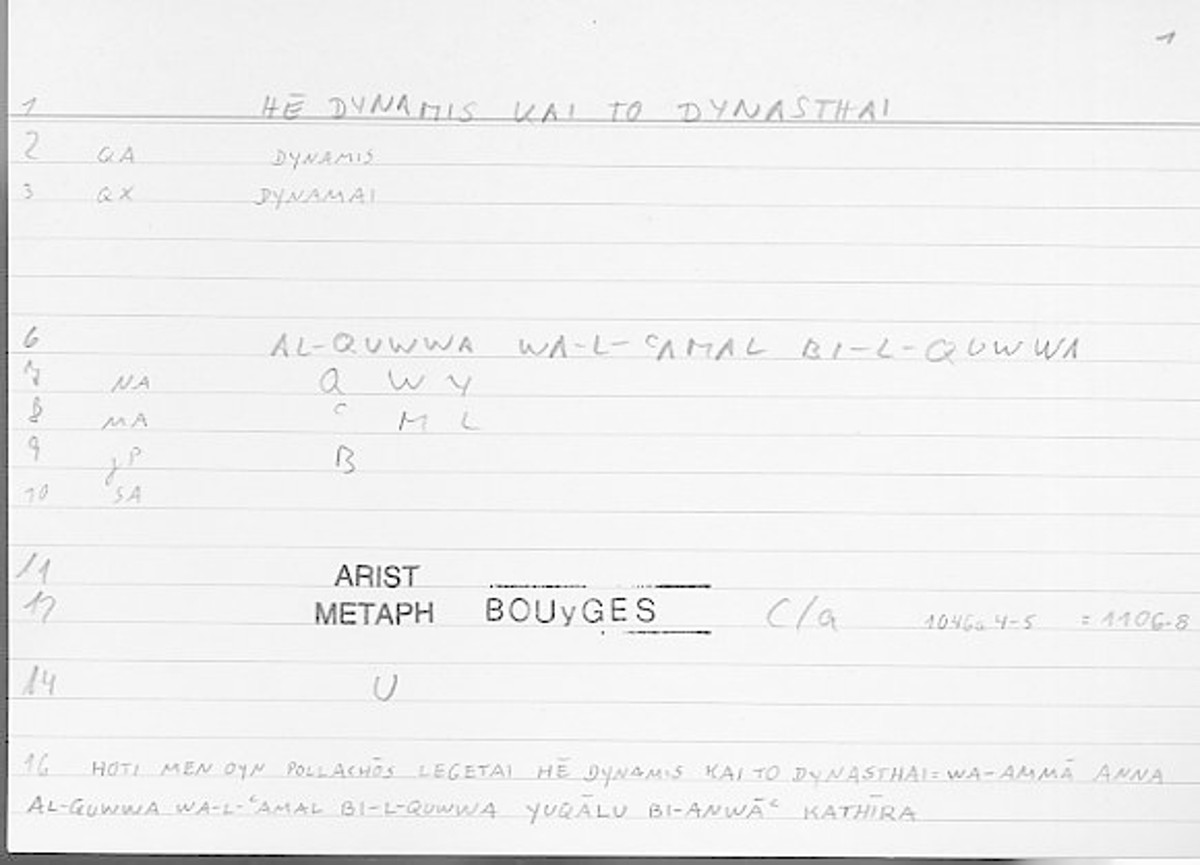 1
1 HĒ DYNAMIS KAI TO DYNASTHAI
2 QA DYNAMIS
3 QX DYNAMAI
6 AL-QUWWA WA-L-ʿAMAL BI-L-QUWWA
7 NA Q W Y
8 MA ʿ M L
9 gP B
10 SA
11 ARIST
12 METAPH BOUyGES C/a 1046a 4-5 = 1106-8
14 U
16 HOTI MEN OYN POLLACHŌS LEGETAI HĒ DYNAMIS KAI TO DYNASTHAI = WA-AMMĀ ANNA
AL-QUWWA WA-L-ʿAMAL BI-L-QUWWA YUQĀLU BI-ANWĀʿ KATHĪRA